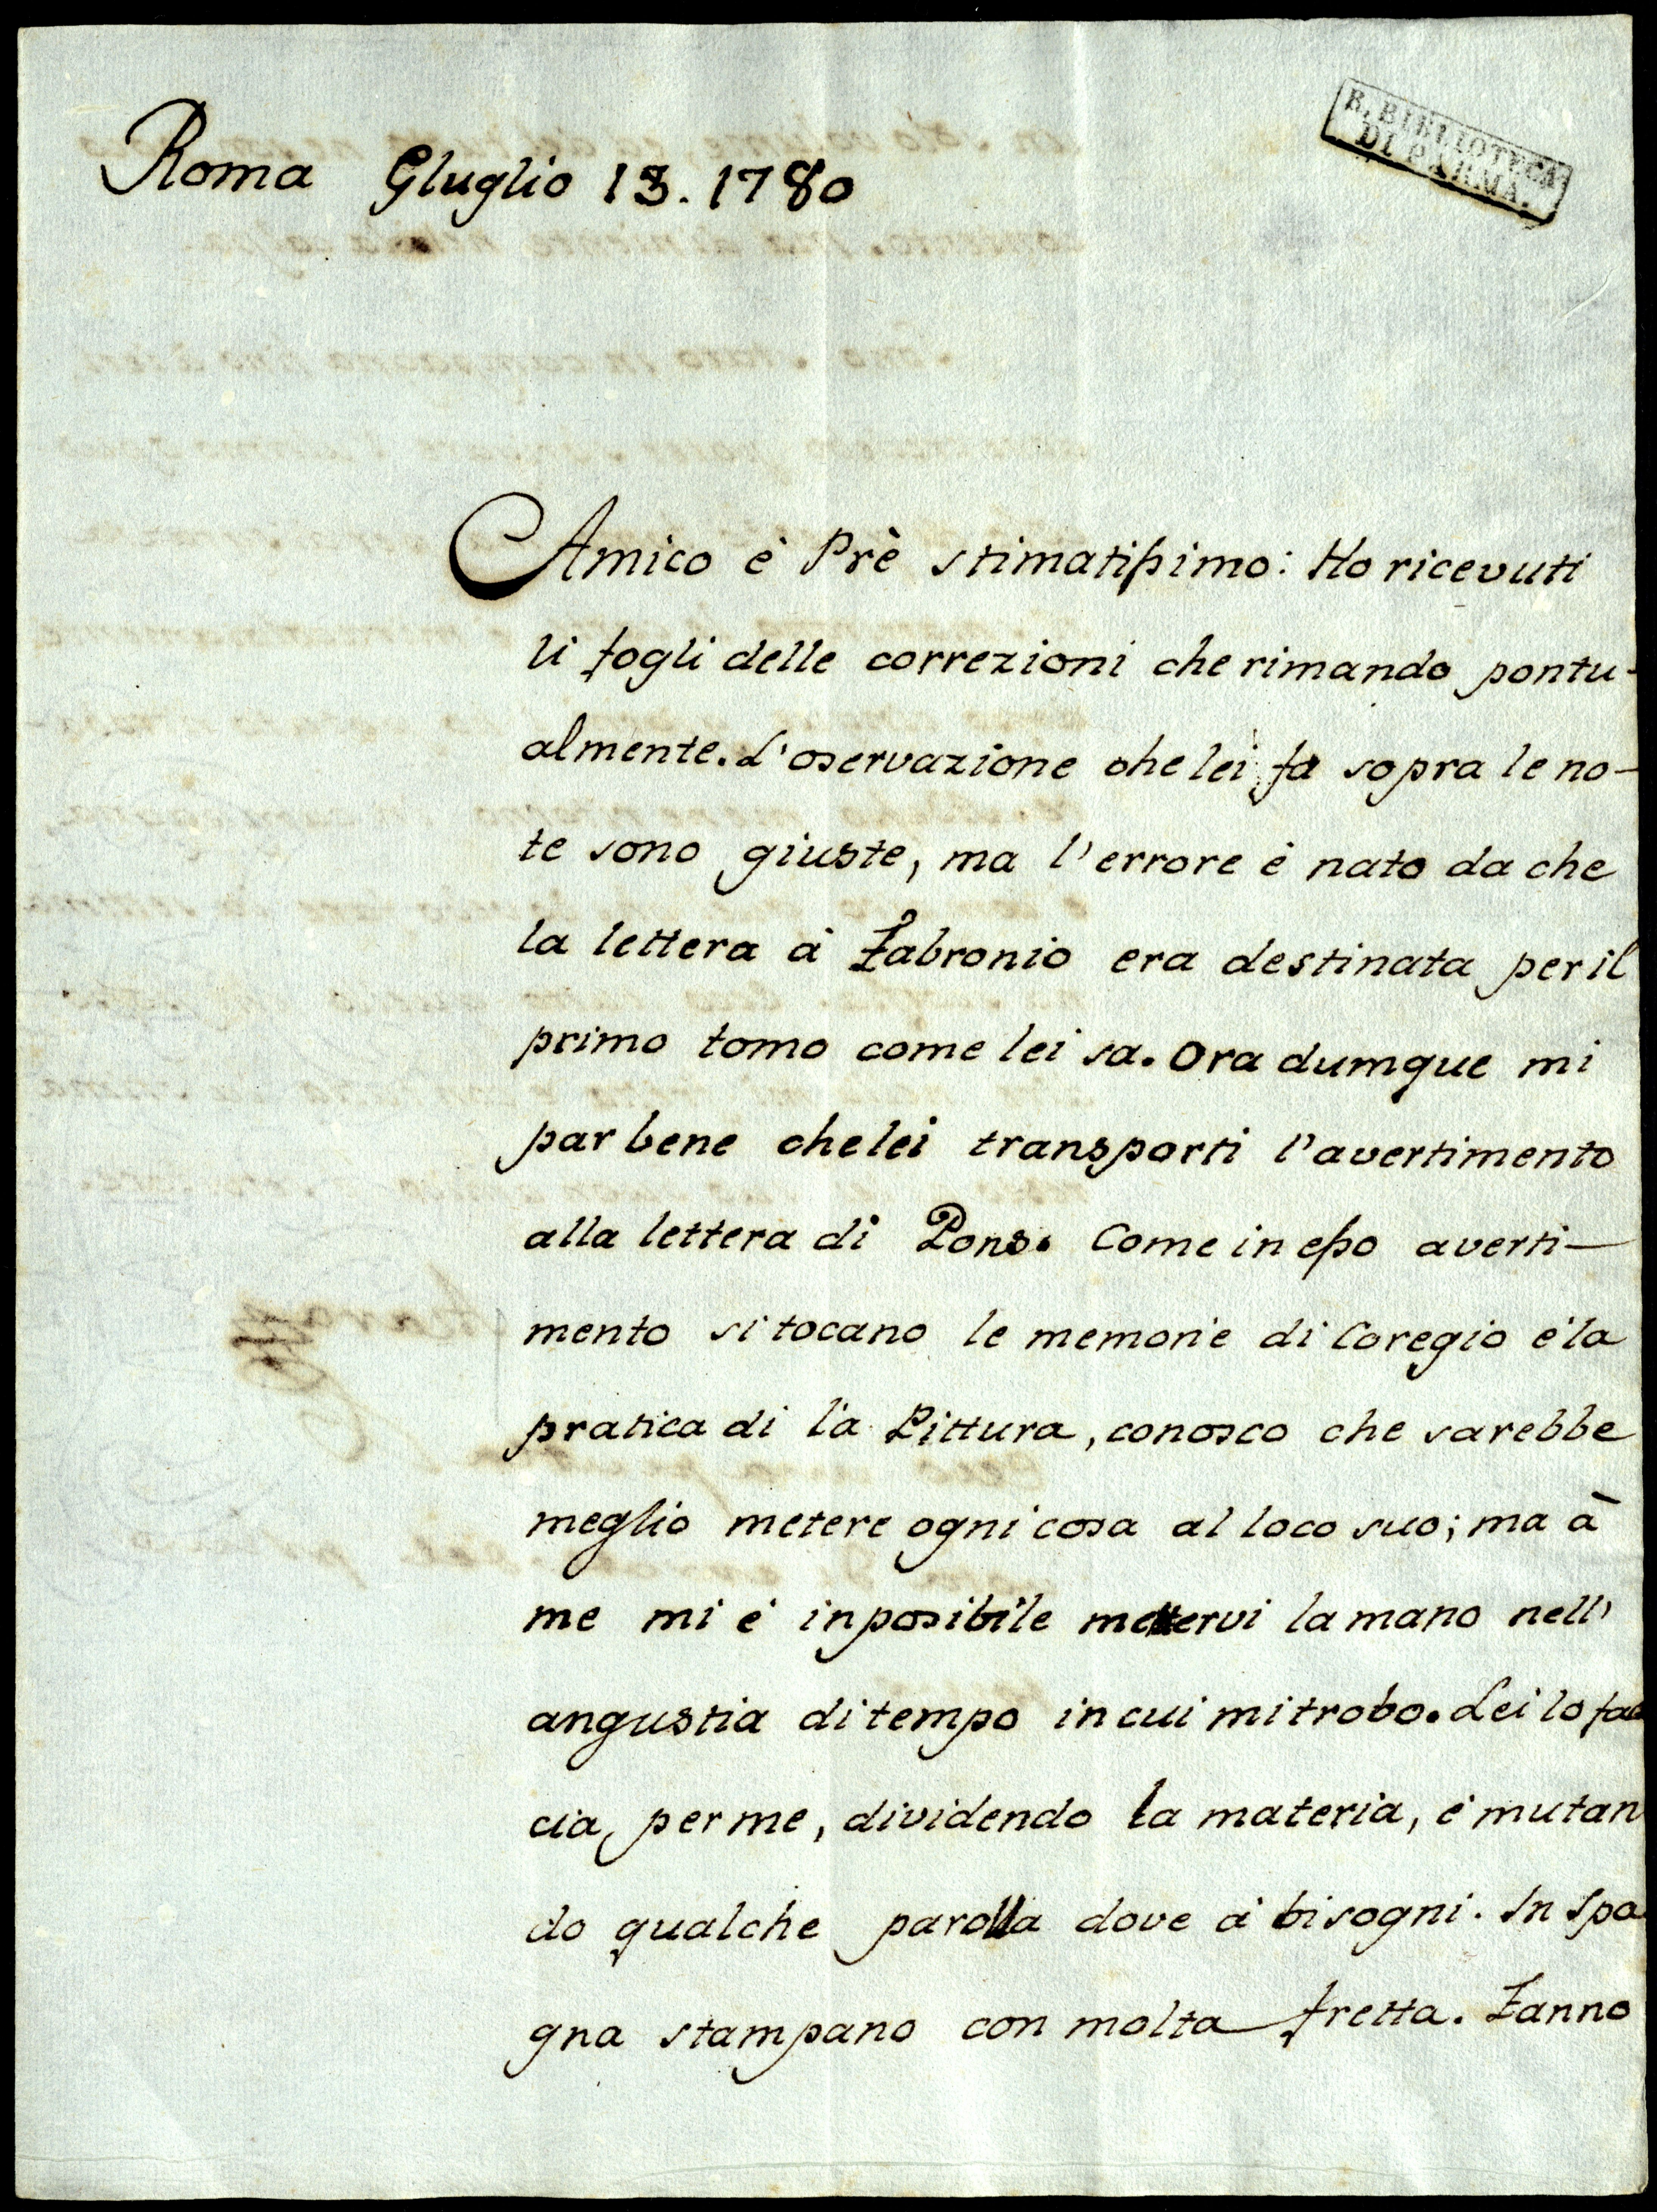 R. BIBLIOTECA
DI PARMA.
Roma Gluglio 13. 1780
Amico è Prè stimatißimo: Ho ricevuti
li fogli delle correzioni che rimando pontu-
almente. L'oservazione che lei fa sopra le no-
te sono giuste, ma l'errore è nato da che
la lettera à Fabronio era destinata per il
primo tomo come lei sa. Ora dumque mi
par bene che lei transporti l'avertimento
alla lettera di Pons. Come in eßo averti-
mento si tocano le memorie di Coregio è la
pratica di la Pittura, conosco che sarebbe
meglio metere ogni cosa al loco suo; ma à
me mi è inposibile mettervi la mano nell'
angustia di tempo in cui mi trobo. Lei lo fac
cia per me, dividendo la materia, è mutan
do qualche parolla dove à bisogni. In Spa
gna stampano con molta fretta. Fanno